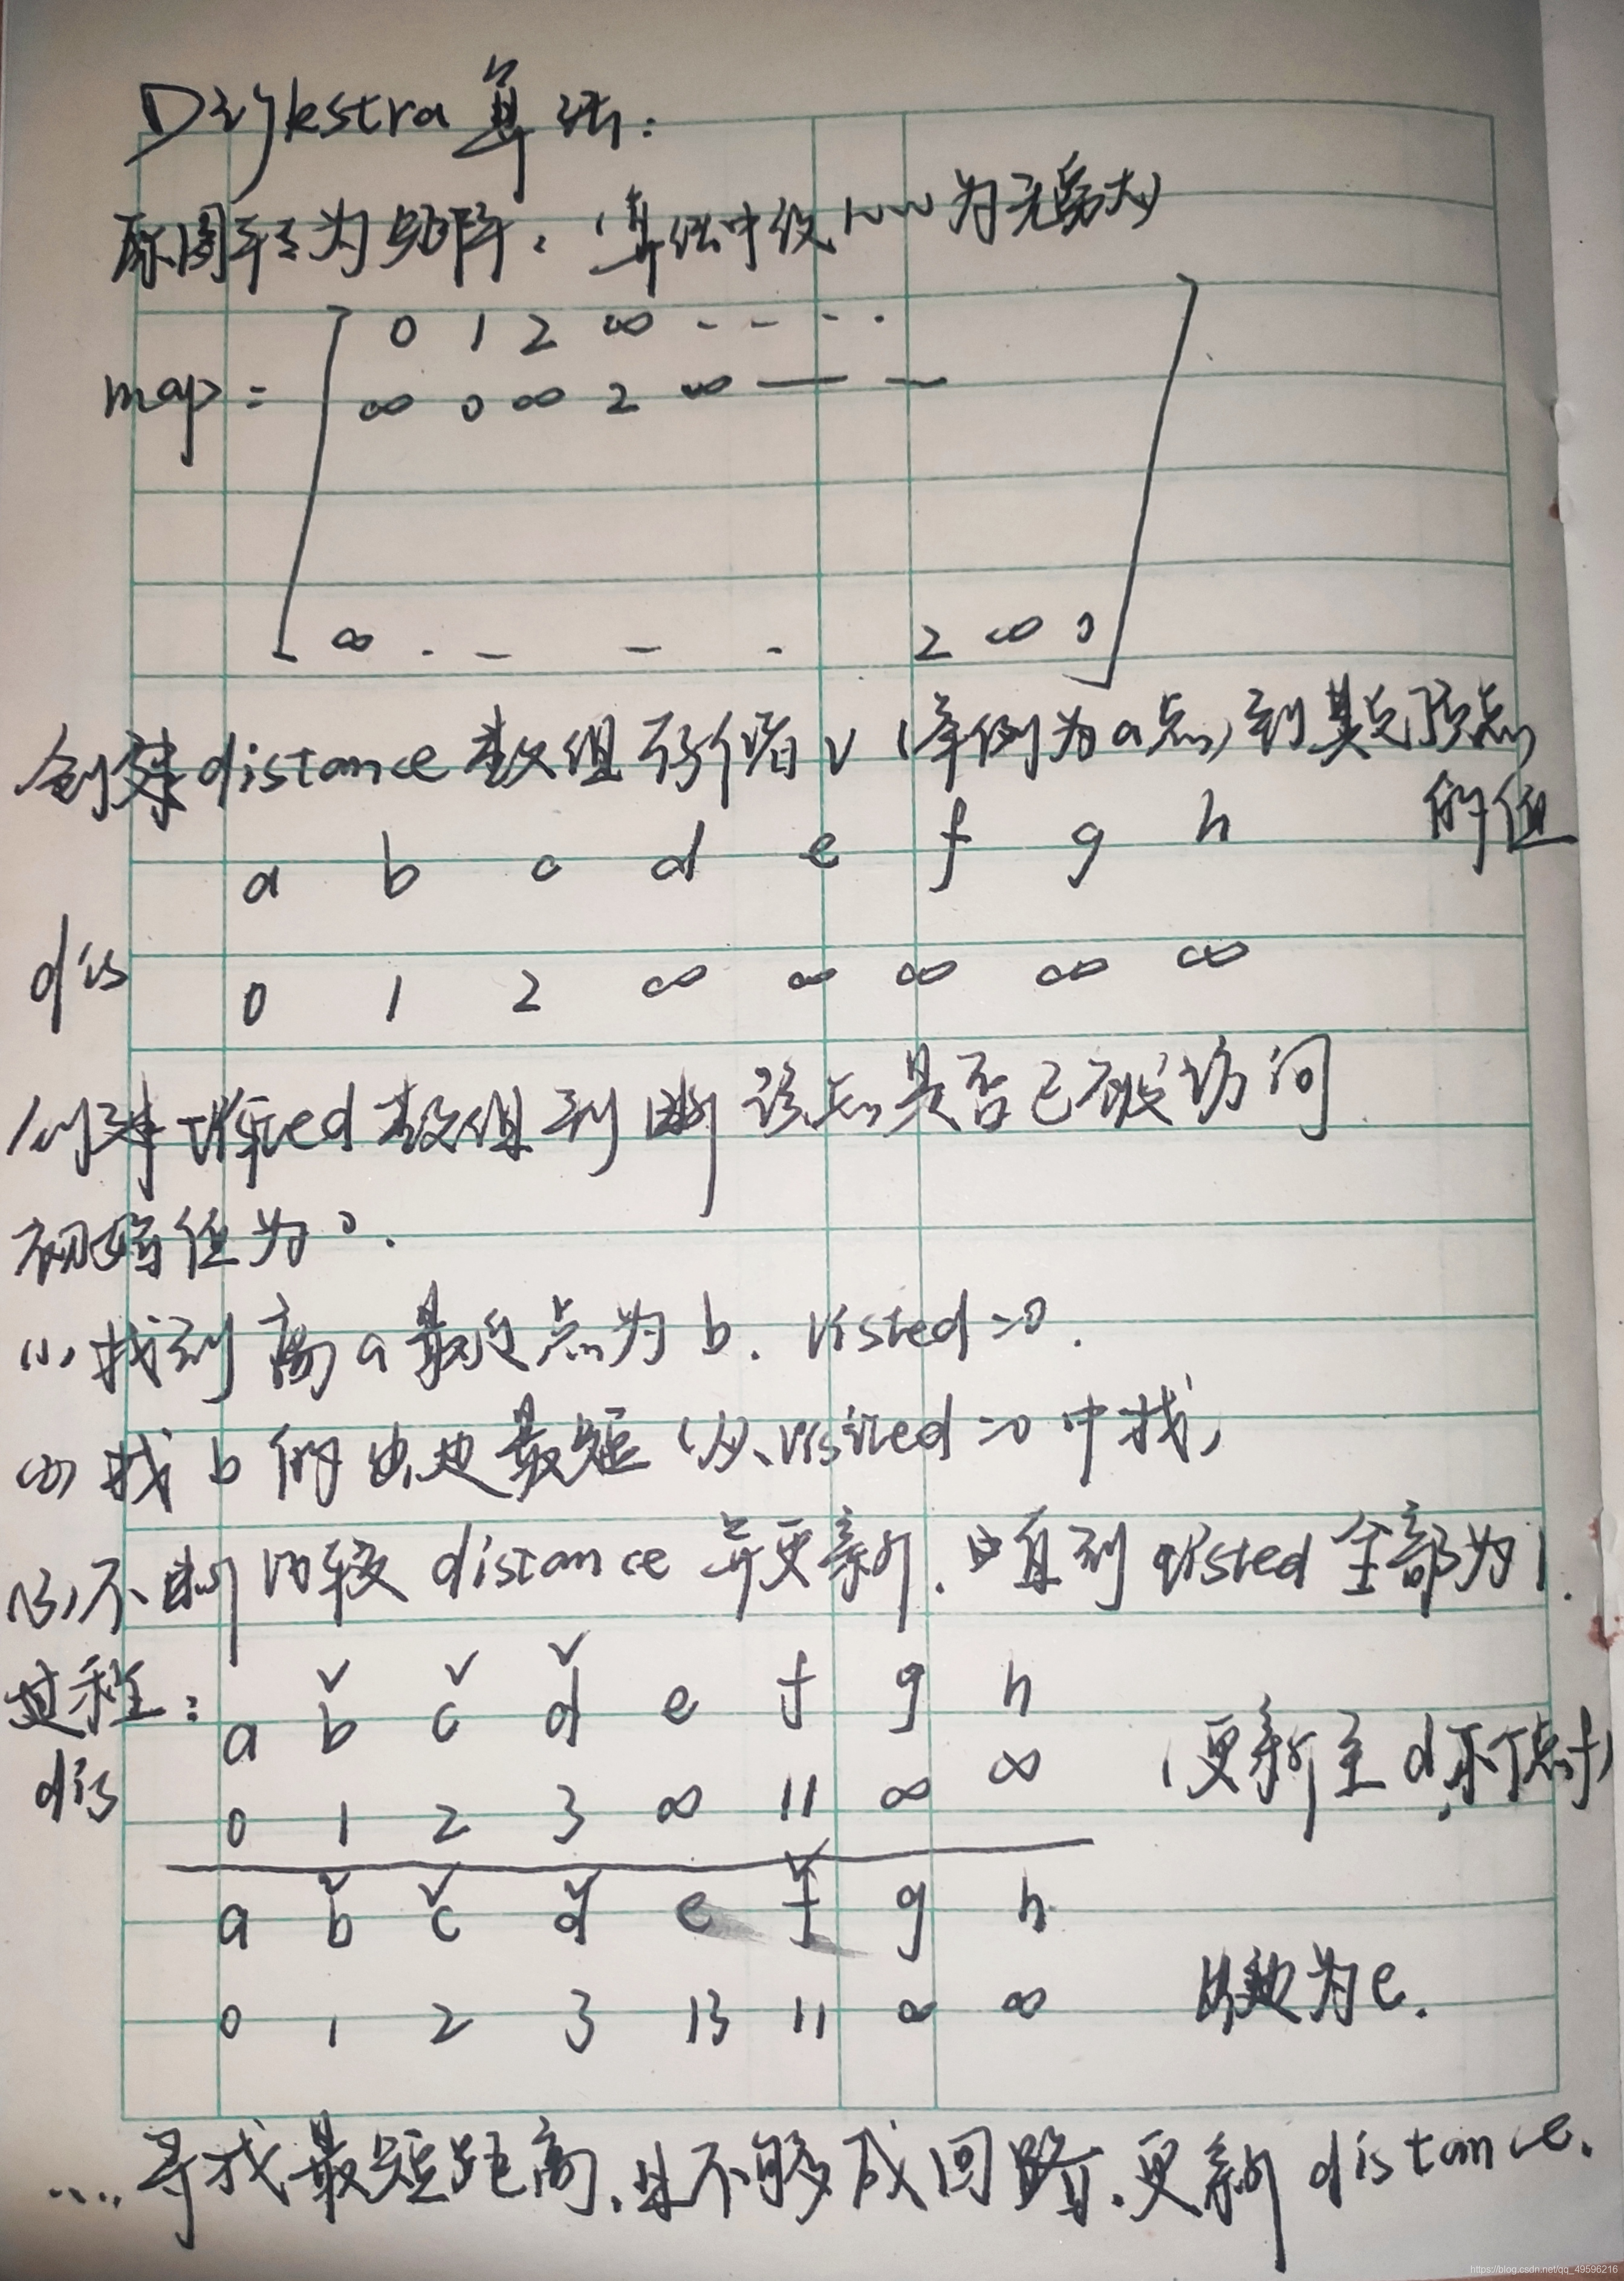 Dijkstra 算法:
原图转为矩阵:(算法中设 为无穷大)
0 1 2 ∞ - - - ·
map = ∞ 0 ∞ 2 ∞ — —
∞ . - - . 2 ∞ 0
创建distance数组存储 v (举例为a点)到其它顶点
的值
a b c d e f g h
dis 0 1 2 ∞ ∞ ∞ ∞ ∞
创建visited数组判断该点是否已被访问
初始值为0.
(1)找到离a最近点为b. visted=0.
(2)找b的出边最短(从visited=0中找)
(3)不断比较distance并更新.直到visted全部为1.
过程: a b c d e f g h
dis 0 1 2 3 ∞ 11 ∞ ∞ (更新至d, 点f)
a b c d e f g h
0 1 2 3 13 11 ∞ ∞ 出边为e.
....寻找最短距离,且不够成回路,更新distance.
https://blog.csdn.net/qq_49596216